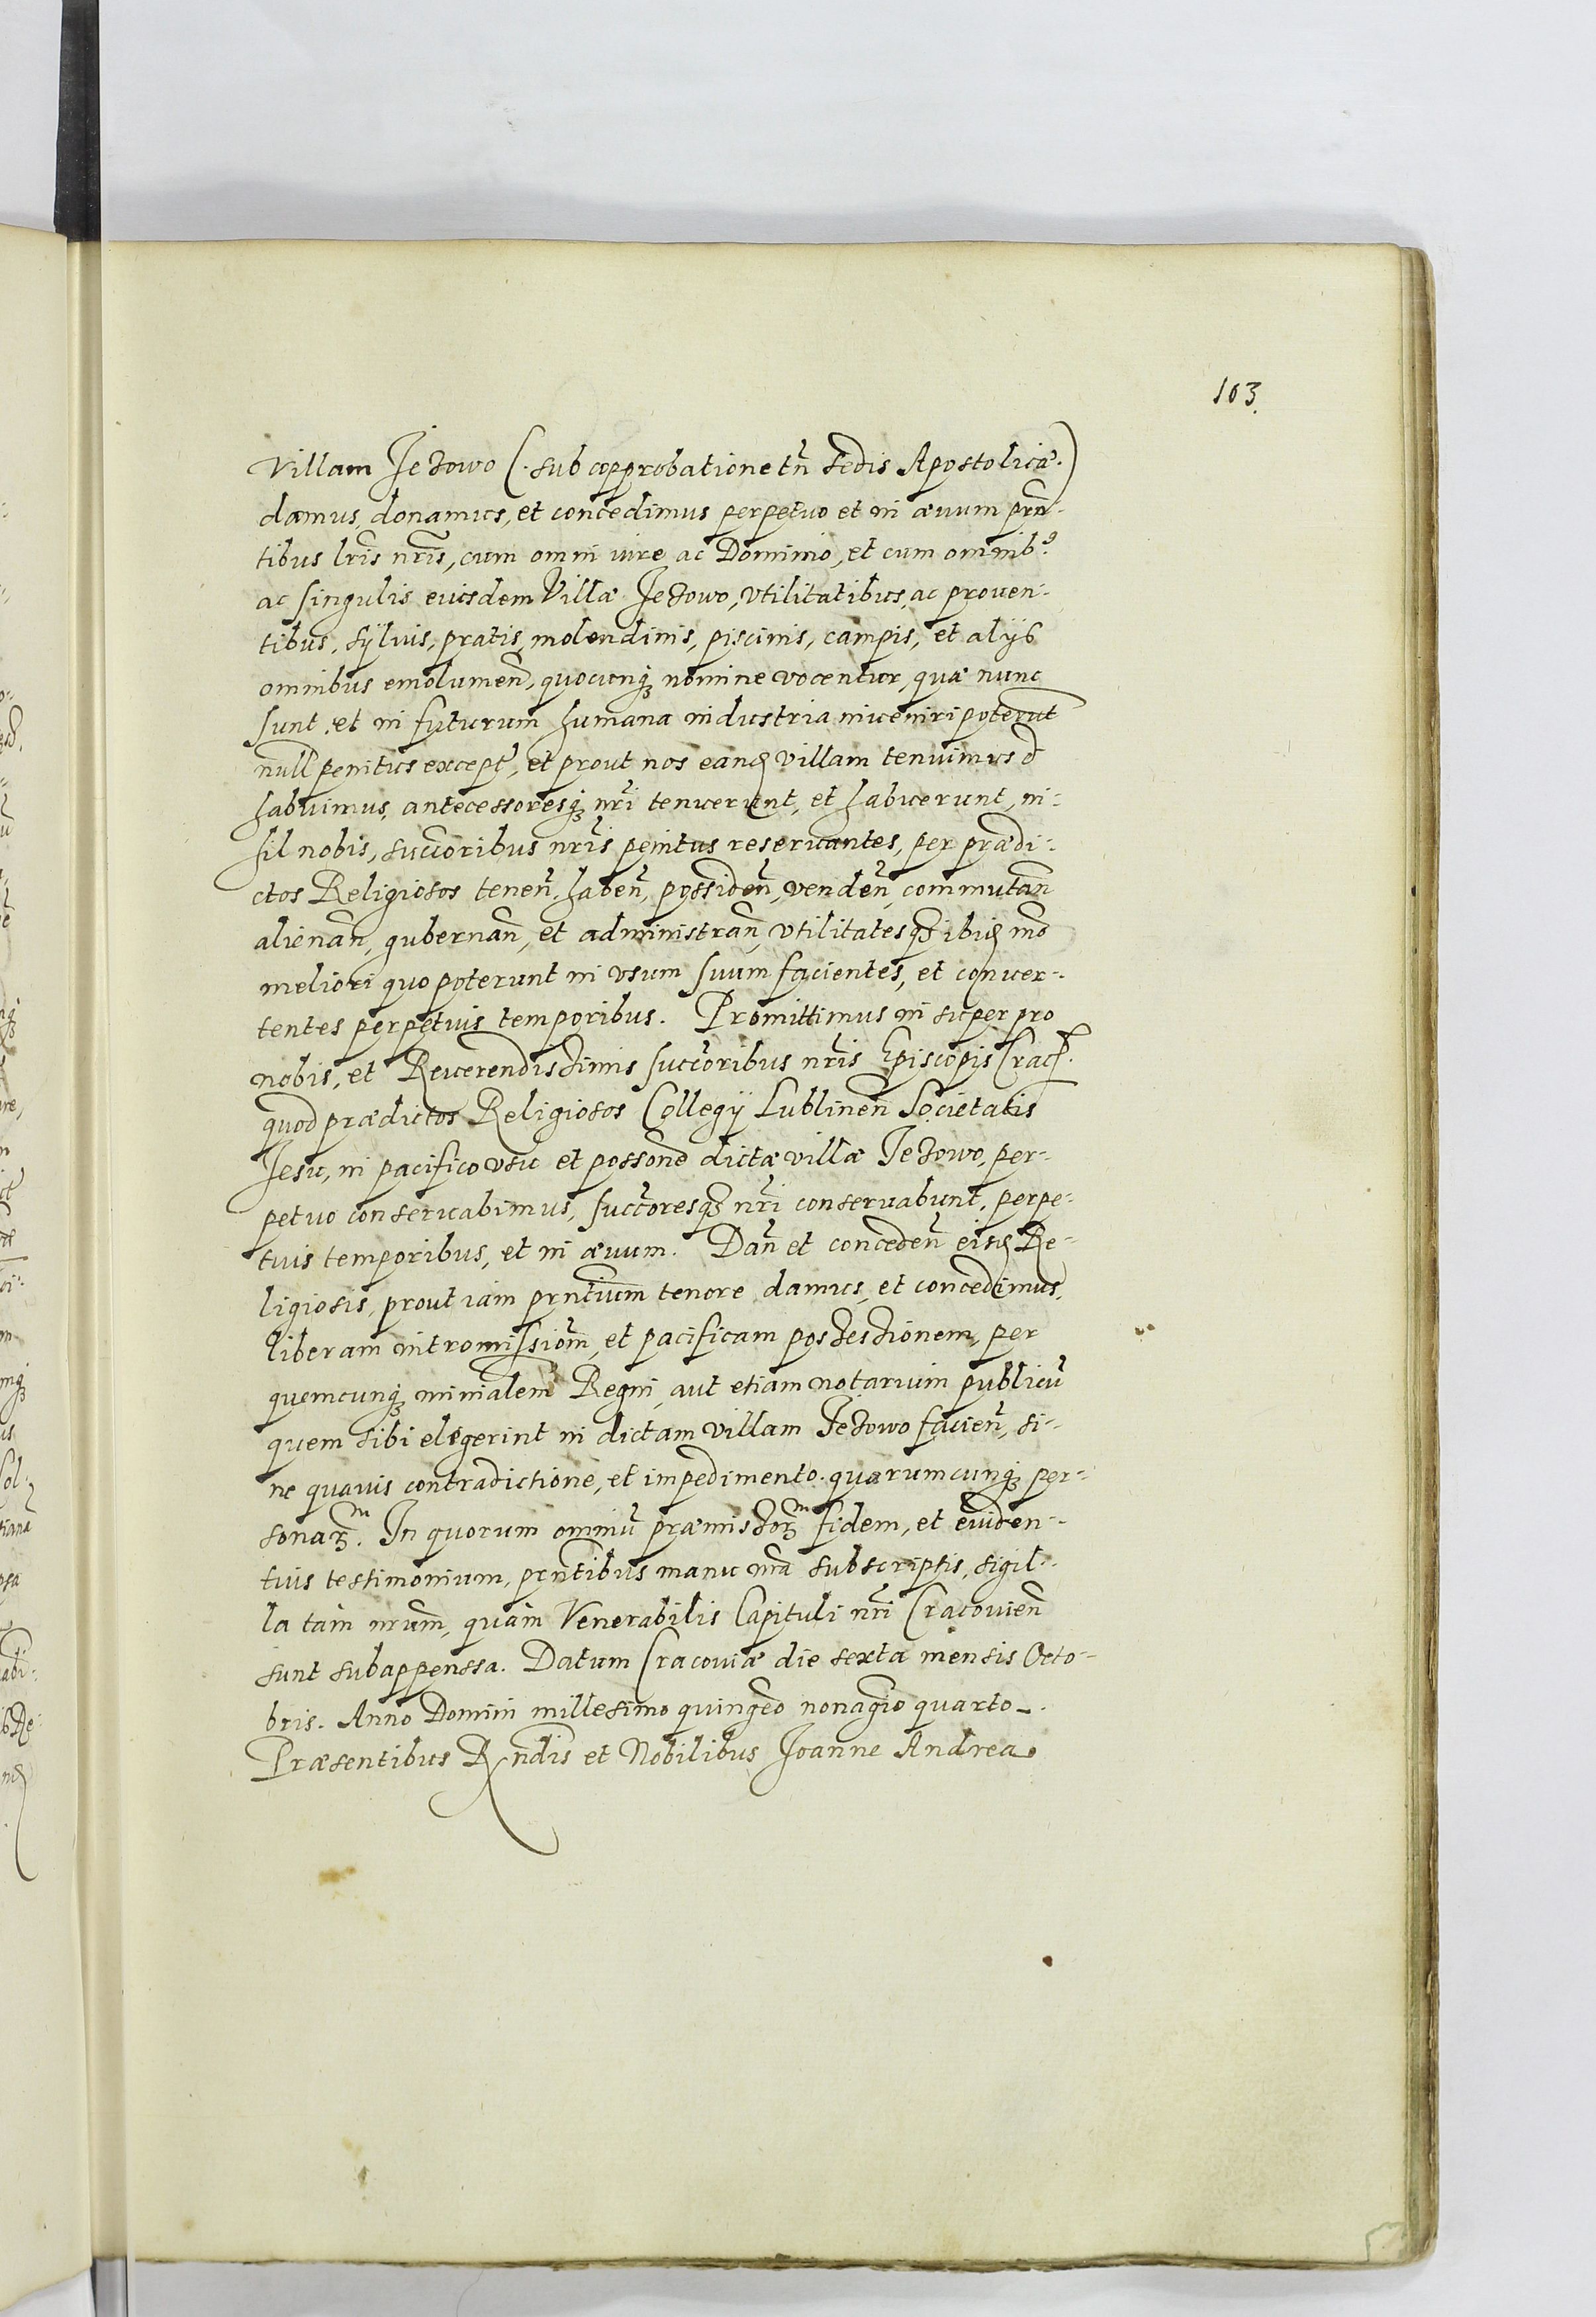 103.
Villam Jezowo (. sub approbatione tn̄ Sedis Apostolicæ.)
damus, donamus, et concedimus perpetuo et in æuum prn̄-
tibus lr̄is nr̄is, cum omni iure ac Dominio, et cum omnib9
ac singulis eiusdem Villæ Jezowo, vtilitatibus, ac prouen-
tibus, syluis, pratis, molendinis, piscinis, campis, et alijs
omnibus emolumen̄, quocunq3 nomine vocentur, quæ nunc
sunt, et in futurum humana industria inueniri poterūt
null penitus except, et prout nos eand villam tenuimus
habuimus, antecessoresq3 nr̄i tenuerunt, et habuerunt, ni-
hil nobis, succ̄oribus nr̄is penitus reseruantes, per prædi-
ctos Religiosos tenen̄, haben̄, possiden̄, venden̄, commutan̄
alienan̄, gubernan̄, et administran̄, vtilitatesq3 ibid mō
meliori quo poterunt in vsum suum facientes, et conuer-
tentes perpetuis temporibus. Promittimus in super pro
nobis, et Reuerendissimis succ̄oribus nr̄is Episcopis Crac.
quod prædictos Religiosos Collegij Lublinen̄ Societatis
Jesu, in pacifico vsu et posson̄e dictæ villæ Jezowo, per-
petuo conseruabimus, succ̄oresq3 nr̄i conseruabunt, perpe-
tuis temporibus, et in æuum. Dan̄ et conceden̄ eisd Re-
ligiosis, prout iam prn̄tium tenore damus, et concedimus,
liberam intromissiom̄, et pacificam possessionem, per
quemcunq3 minialem Regni, aut etiam notarium publicū
quem sibi elegerint in dictam villam Jezowo facien̄, si-
ne quauis contradictione, et impedimento quarumcunq3 per-
sonarm. In quorum omniū præmissorm fidem, et euiden-
tius testimonium, prn̄tibus manu nr̄a subscriptis, sigil-
la tam nr̄um, quam Venerabilis Capituli nr̄i Cracouien̄
sunt subappenssa. Datum Cracouiæ die sexta mensis Octo-
bris. Anno Domini millesimo quingēo nonagīo quarto_.
Præsentibus Rn̄dis et Nobilibus Joanne Andrea